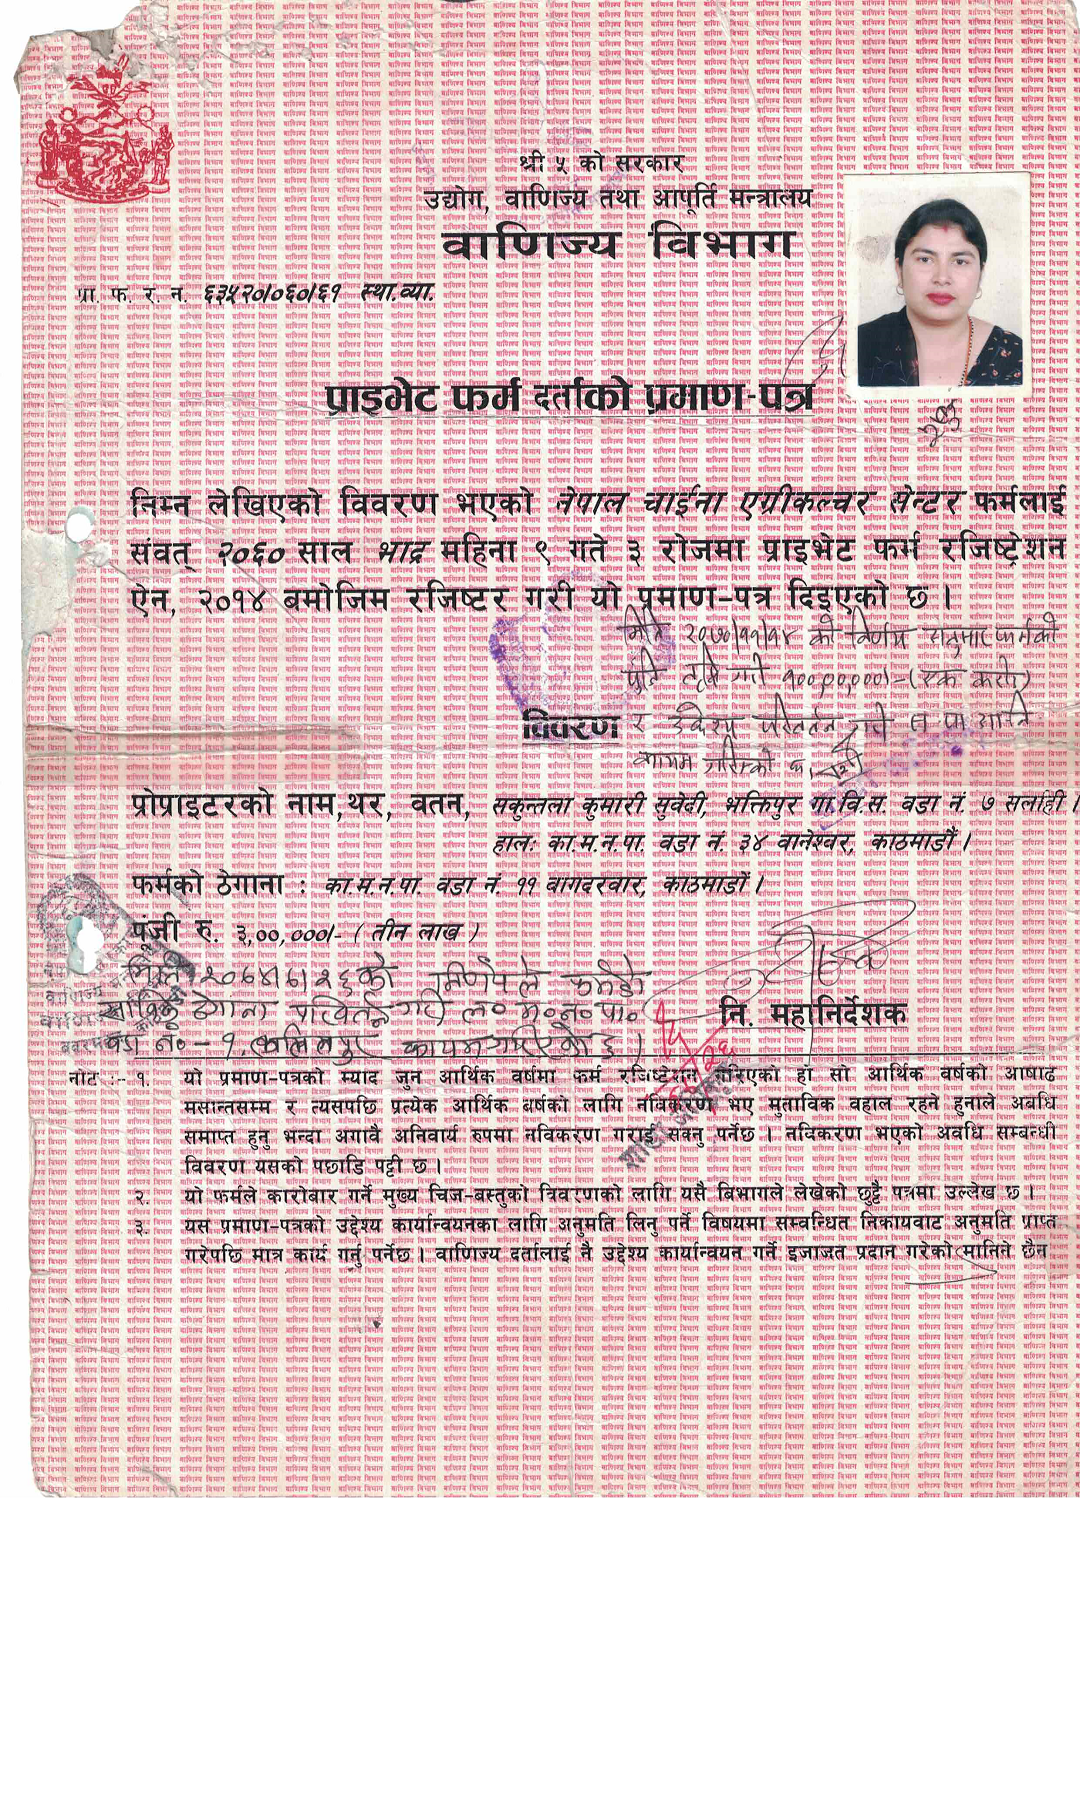 श्री ५ को सरकार
उद्योग, वाणिज्य तथा आपूर्ति मन्त्रालय
वाणिज्य विभाग
प्रा. फ. र. नं. ६३५२०/०६०/६१ स्था.व्या.
प्राइभेट फर्म दर्ताको प्रमाण-पत्र
निम्न लेखिएको विवरण भएको नेपाल चाईना एग्रीकल्चर सेन्टर फर्मलाई
संवत् २०६० साल भाद्र महिना ९ गते ३ रोजमा प्राइभेट फर्म रजिष्ट्रेशन
ऐन, २०१४ बमोजिम रजिष्टर गरी यो प्रमाण-पत्र दिइएको छ ।
मिति २०७०/११/१४ को निर्णय अनुसार फर्मको
पुँजि वृद्धि गरी १००,००,०००/- (एक करोड)
विवरण
र उद्देश्य परिवर्तन गरी
कायम गरिएको छ।
प्रोप्राइटरको नाम, थर, वतन, सकुन्तला कुमारी सुवेदी, भक्तिपुर गा.वि.स. वडा नं. ७ सर्लाही ।
हालः का.म.न.पा. वडा नं. ३४ वानेश्वर, काठमाडौं ।
फर्मको ठेगाना : का.म.न.पा. वडा नं. ११ वागदरवार, काठमाडौं ।
पंजी रु. ३,००,०००/- ( तीन लाख )
को निर्णयले फर्मको
ठेगाना परिवर्तन गरी ल० म० न० पा०
वडा नं० - १, ललितपुर कायम गरिएको छ ।
नि. महानिर्देशक
नोट :- १. यो प्रमाण-पत्रको म्याद जुन आर्थिक वर्षमा फर्म रजिष्ट्रेशन गरिएको हो सो आर्थिक वर्षको आषाढ
मसान्तसम्म र त्यसपछि प्रत्येक आर्थिक बर्षको लागि नविकरण भए मुताविक वहाल रहने हुनाले अवधि
समाप्त हुनु भन्दा अगावै अनिवार्य रुपमा नविकरण गराई सक्नु पर्नेछ । नविकरण भएको अवधि सम्बन्धी
विवरण यसको पछाडि पट्टी छ ।
२. यो फर्मले कारोबार गर्ने मुख्य चिज-बस्तुको विवरणको लागि यसै विभागले लेखेको छुट्टै पत्रमा उल्लेख छ ।
३. यस प्रमाण-पत्रको उद्देश्य कार्यान्वयनका लागि अनुमति लिनु पर्ने विषयमा सम्वन्धित निकायवाट अनुमति प्राप्त
गरेपछि मात्र कार्य गर्नु पर्नेछ । वाणिज्य दर्तालाई नै उद्देश्य कार्यान्वयन गर्ने इजाजत प्रदान गरेको मानिने छैन